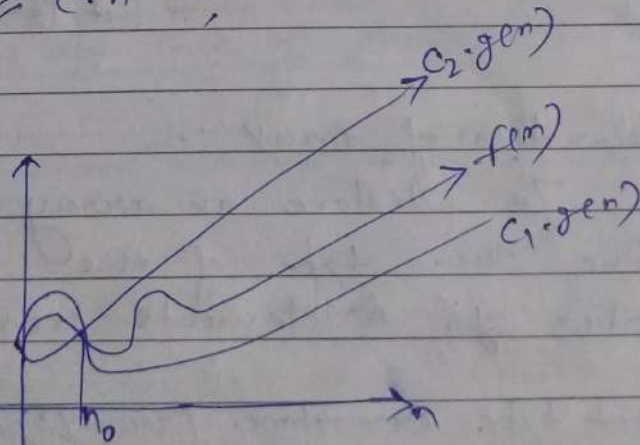 C₂·g(n)
f(n)
C₁·g(n)
n₀
n